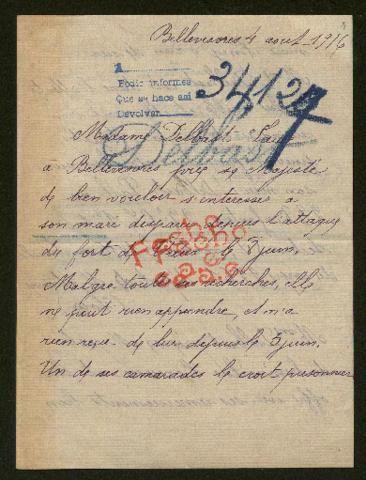 Bellenaves 4 aout 1916
Pedir informes
Que se hace asi
Devolver
34124
Madame Delbast
Delbast
a Bellenaves prie sa Majesté
de bien vouloir s'interesser a
son mari disparu depuis l'attaque
du fort de Vaux le 3 juin.
Malgré toutes ses recherches, elle
ne peut rien apprendre, et n'a
rien reçu de lui depuis le 3 juin.
Un de ses camarades le croit prisonnier